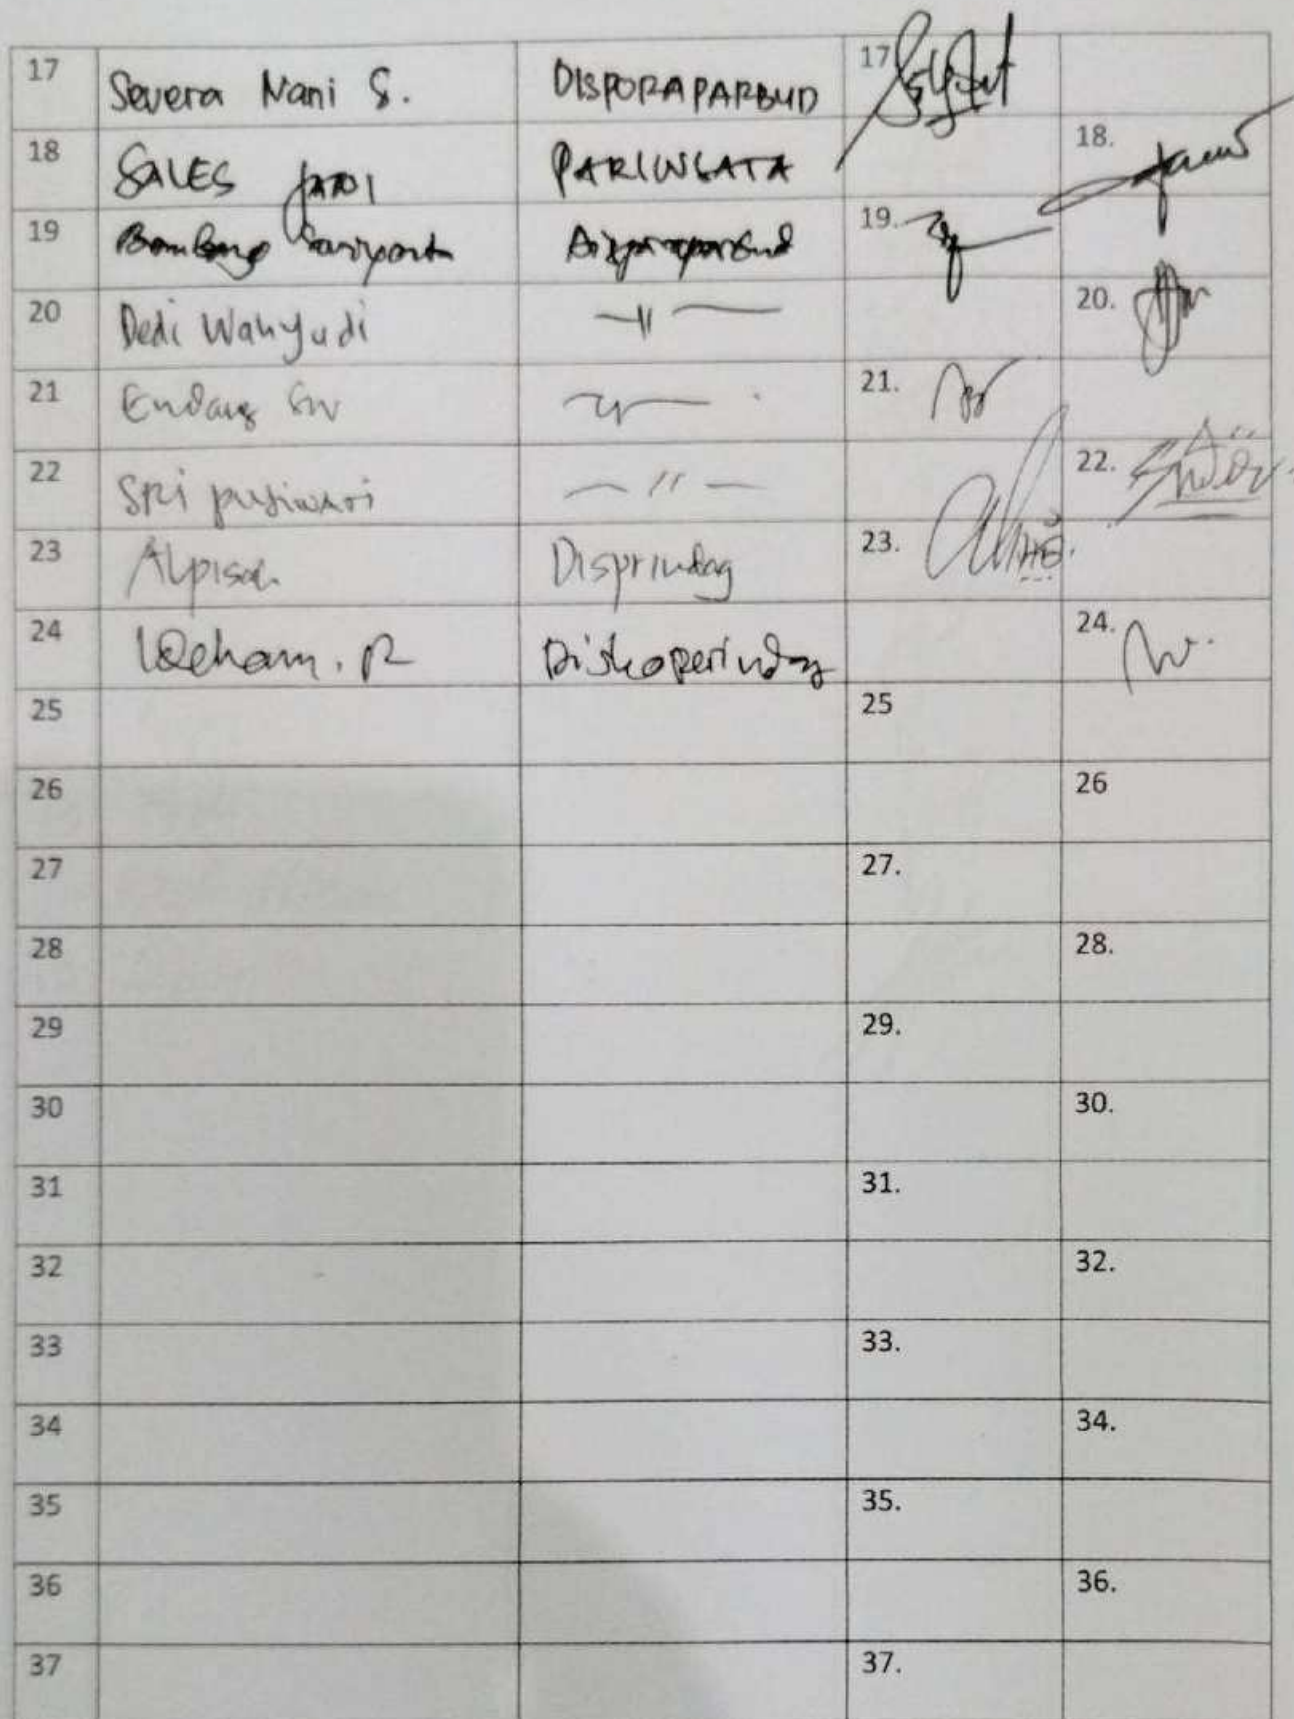 17 Severa Nani S. DISPORAPARBUD 17
18 SALES JADI PARIWISATA 18.
19 Bambang Disporaparbud 19.
20 Dedi Wahyudi —〃— 20.
21 Endang SW —〃— 21.
22 SRI —〃— 22.
23 Alpisah Disprindag 23.
24 R Diskoperindag 24.
25 25
26 26
27 27.
28 28.
29 29.
30 30.
31 31.
32 32.
33 33.
34 34.
35 35.
36 36.
37 37.